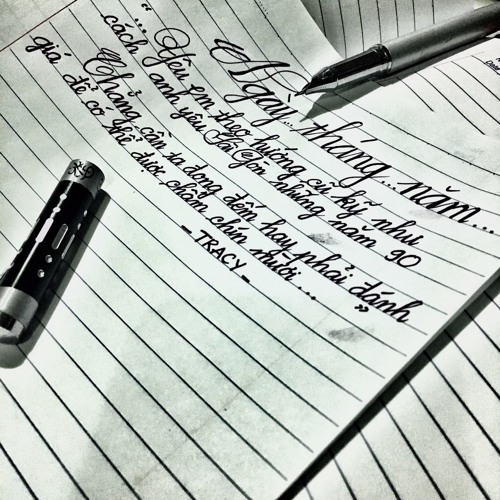 Ngày... tháng... năm...
"... Yêu em theo hướng cũ kỹ như
cách anh yêu Sài Gòn những năm 90
Chẳng cần ta đong đếm hay phải đánh
giá để có thể được chấm chín mười... "
- TRACY -